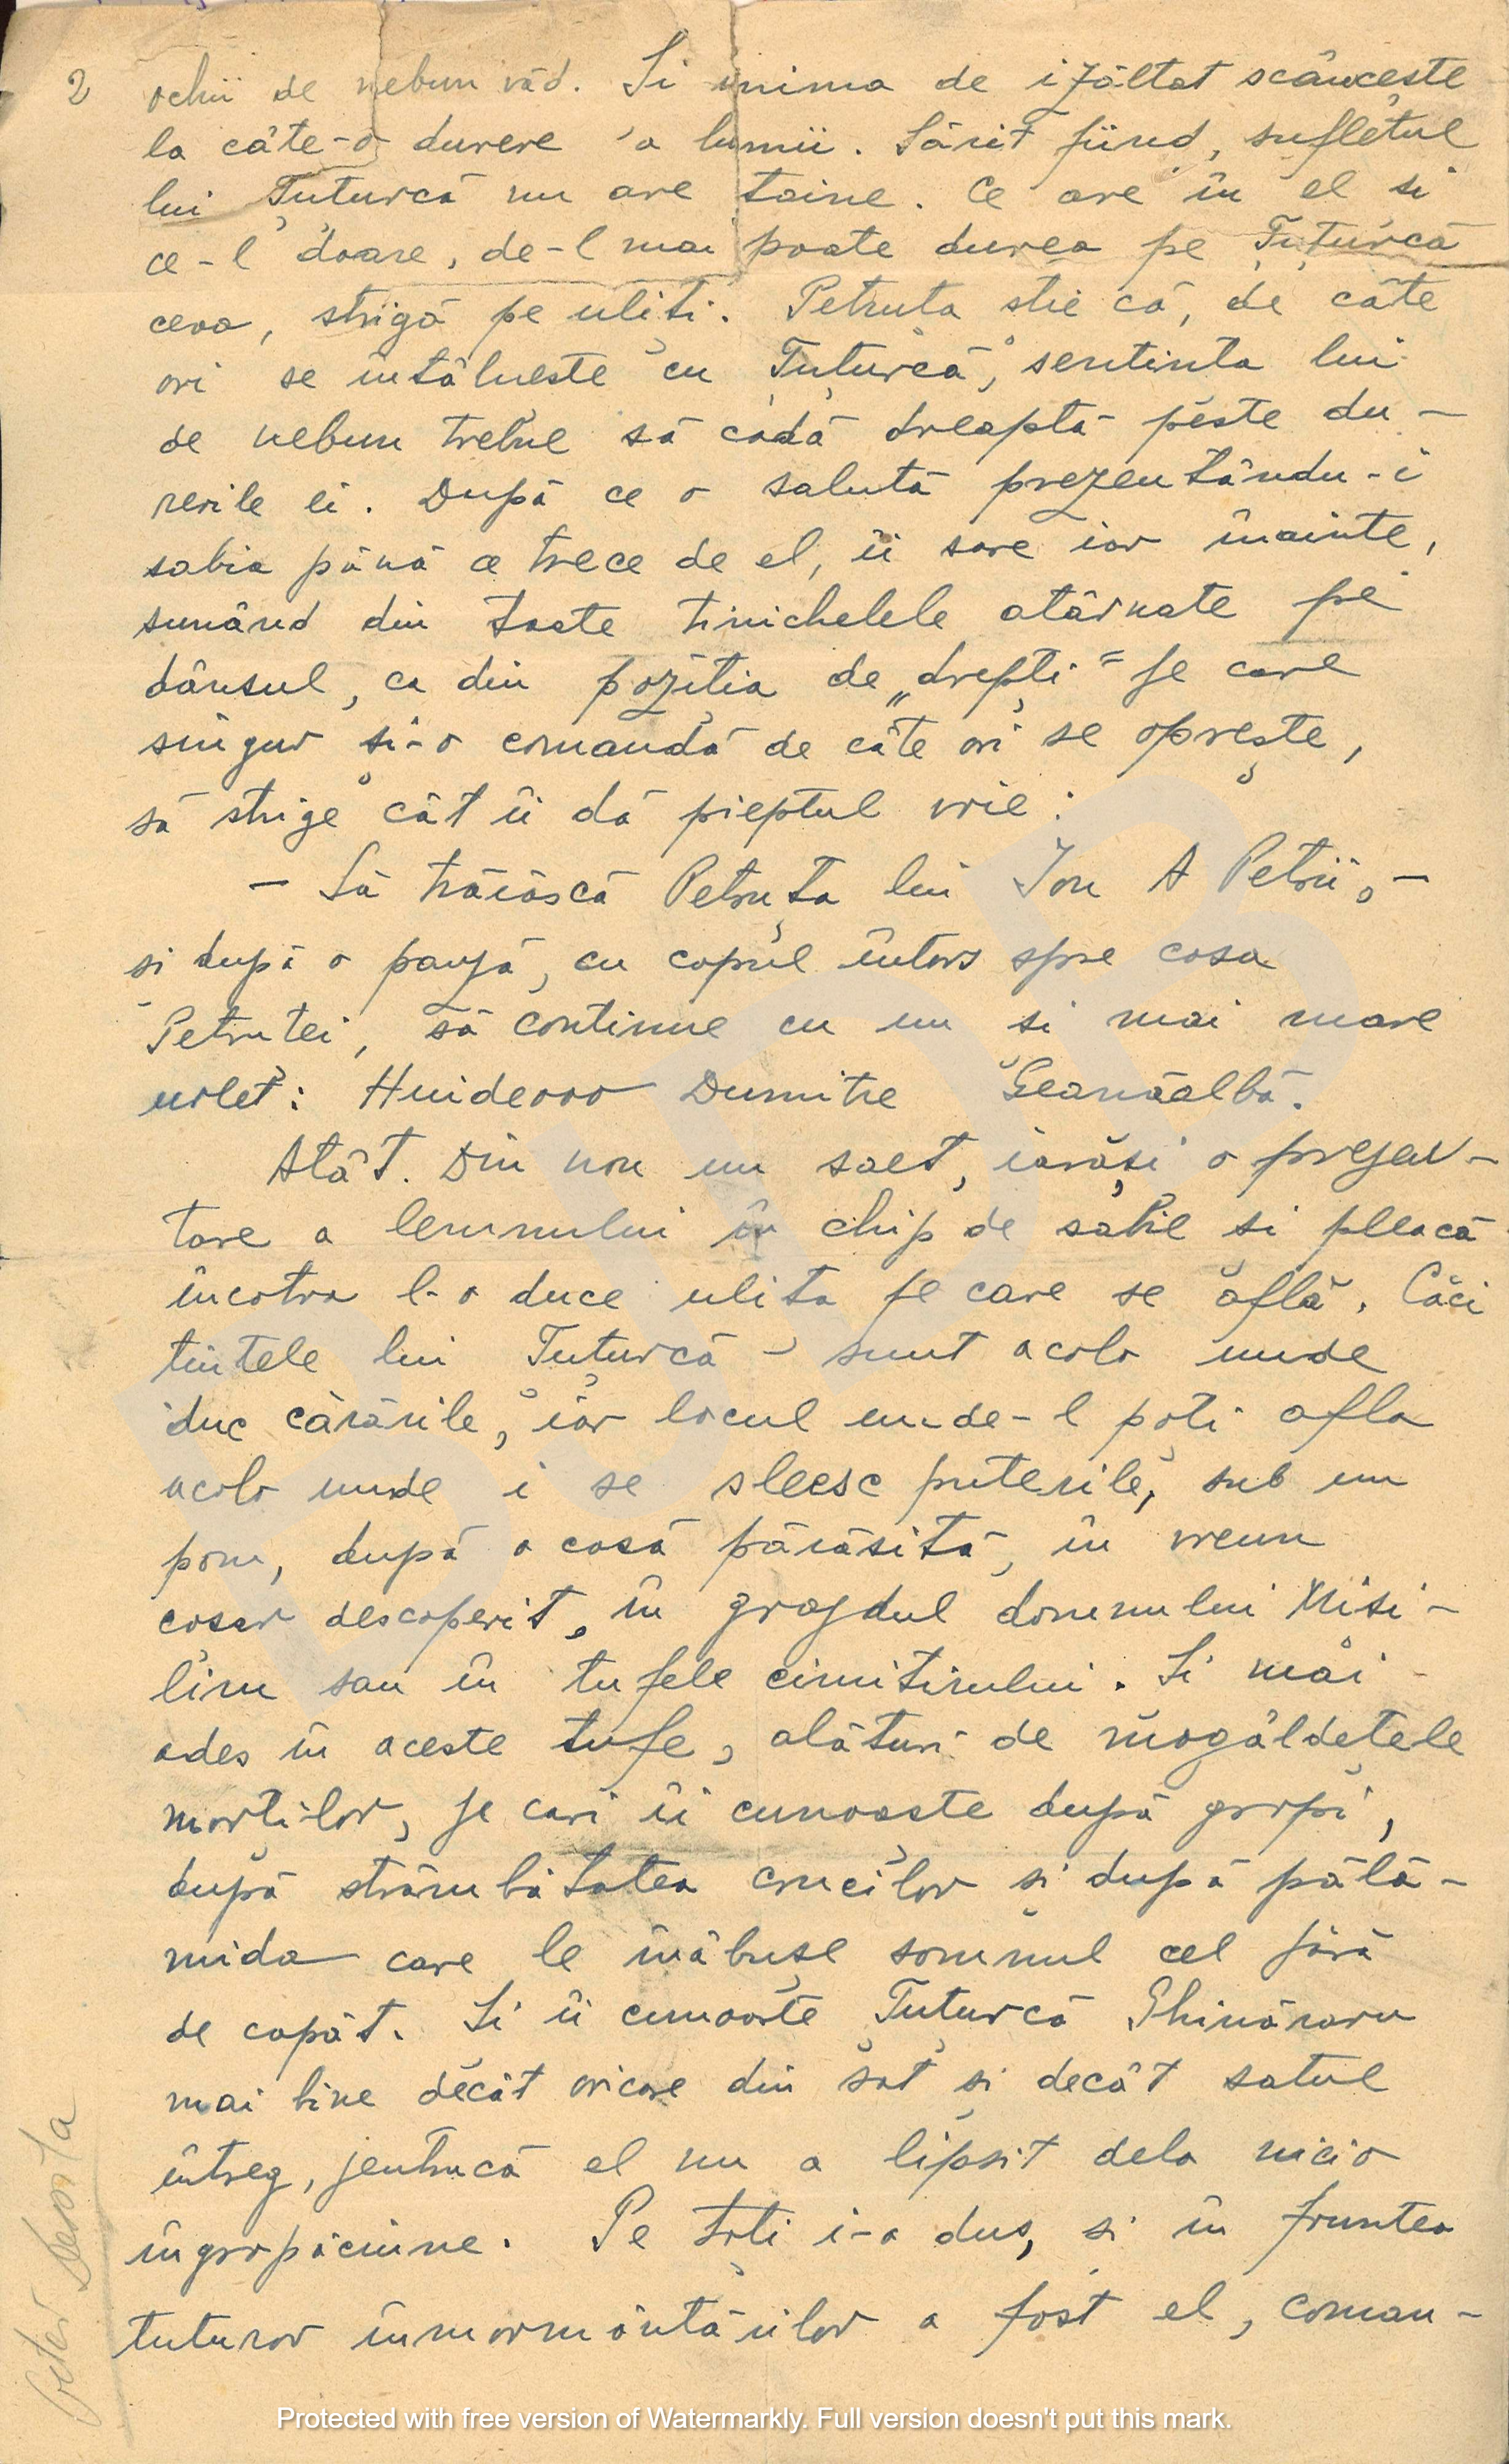 2 ochii de nebun văd. Și inima de izăltat scâncește
la câte-o durere a lumii. Sărit fiind, sufletul
lui Țuțurcă nu are taine. Ce are în el și
ce-l doare, de-l mai poate durea pe Țuțurcă
ceva, strigă pe uliți. Petruța știe că, de câte
ori se întâlnește cu Țuțurcă, sentința lui
de nebun trebue să cadă dreaptă peste du-
rerile ei. După ce o salută prezentându-i
sabia până ce trece de el, îi sare iar înainte,
sunând din toate tinichelele atârnate pe
dânsul, ca din poziția de „drepți" pe care
singur și-o comandă de câte ori se oprește,
să strige cât îi dă pieptul vrie:
- Să trăiască Petruța lui Ion A Petrii, -
și după o pauză, cu capul întors spre casa
Petruței, să continue cu un și mai mare
urlet: Huideooo Dumitre Geanăalbă.
Atât. Din nou un salt, iarăși o prezen-
tare a lemnului în chip de sabie și pleacă
încotro l-o duce ulița pe care se află. Căci
țintele lui Țuțurcă - sunt acolo unde
duc cărările, iar locul unde-l poți afla
acolo unde i se sleesc puterile, sub un
pom, după o casă părăsită, în vreun
coșar descoperit, în grajdul domnului Misi-
lim sau în tufele cimitirului. Și mai
ades în aceste tufe, alături de mogâldețele
morților, pe cari îi cunoaște după gropi,
după strâmbătatea crucilor și după pălă-
mida care le înăbușe somnul cel fără
de capăt. Și îi cunoaște Țuțurcă Ghinăraru
mai bine decât oricare din sat și decât satul
întreg, pentrucă el nu a lipsit dela nicio
îngropăciune. Pe toți i-a dus, și în fruntea
tuturor înmormântărilor a fost el, coman-
Protected with free version of Watermarkly. Full version doesn't put this mark.